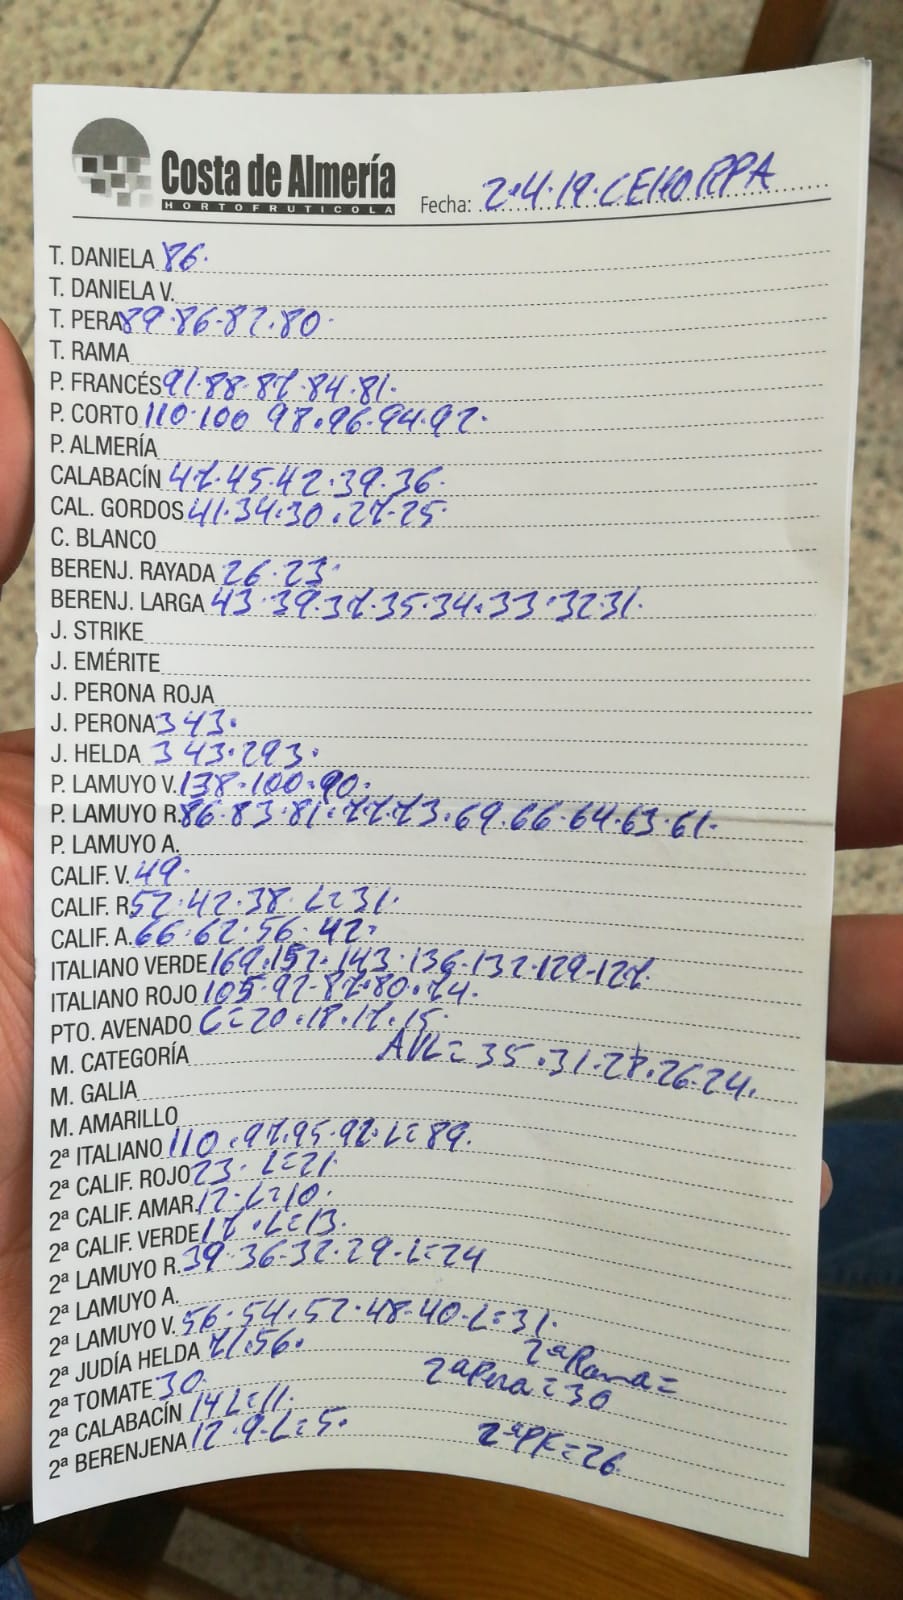 Costa de Almería
HORTOFRUTICOLA
Fecha: 2.4.19. CEHORPA
T. DANIELA 86.
T. DANIELA V.
T. PERA 89.86.82.80.
T. RAMA
P. FRANCÉS 91.88.87.84.81.
P. CORTO 110.100 98.96.94.92.
P. ALMERÍA
CALABACÍN 47.45.42.39.36.
CAL. GORDOS 41.34.30.27.25.
C. BLANCO
BERENJ. RAYADA 26.23.
BERENJ. LARGA 43.39.37.35.34.33.32.31.
J. STRIKE
J. EMÉRITE
J. PERONA ROJA
J. PERONA 343.
J. HELDA 343.293.
P. LAMUYO V. 138.100.90.
P. LAMUYO R. 86.83.81.77.73.69.66.64.63.61.
P. LAMUYO A.
CALIF. V. 49.
CALIF. R 52.42.38. L=31.
CALIF. A. 66.62.56.42.
ITALIANO VERDE 169.152.143.136.132.129.127.
ITALIANO ROJO 105.92.87.80.74.
PTO. AVENADO C=20.18.17.15.
M. CATEGORÍA AVL=35.31.28.26.24.
M. GALIA
M. AMARILLO
2ª ITALIANO 110.97.95.92.L=89.
2ª CALIF. ROJO 23. L=21.
2ª CALIF. AMAR. 12.L=10.
2ª CALIF. VERDE 17.L=13.
2ª LAMUYO R. 39.36.32.29.L=24
2ª LAMUYO A.
2ª LAMUYO V. 56.54.52.48.40.L=31.
2ª JUDÍA HELDA 71.56. 2ªRama=
2ª TOMATE 30. 2ªPera=30
2ª CALABACÍN 14 L=11.
2ª BERENJENA 12.9.L=5. 2ªPF=26